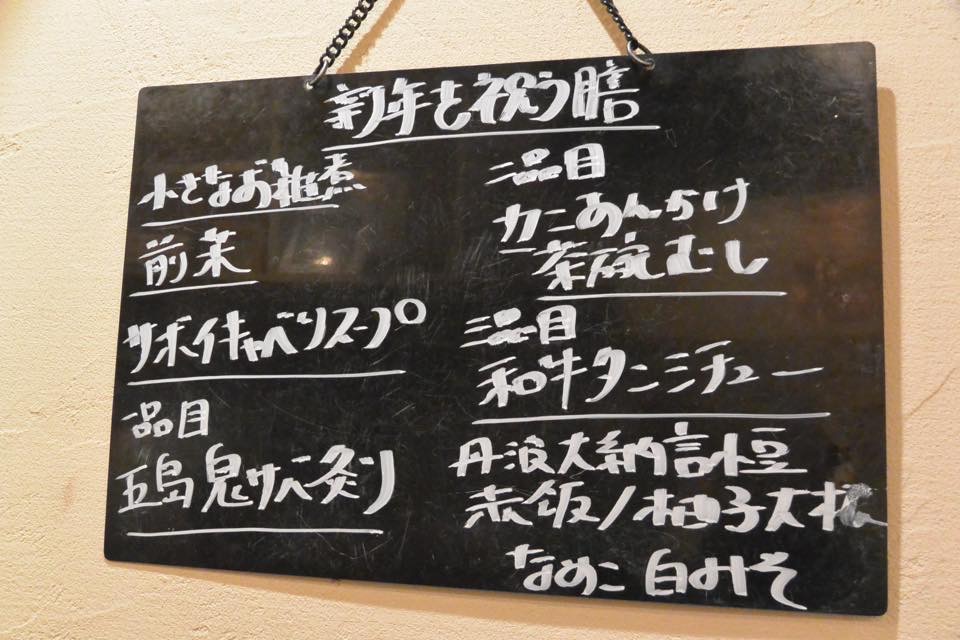 新年を祝う膳
小さなお雑煮
前菜
サボイキャベツスープ
一品目
五島鬼サバ炙り
二品目
カニあんかけ
茶碗むし
三品目
和牛タンシチュー
丹波大納言小豆
赤飯/柚子大根
なめこ 白みそ